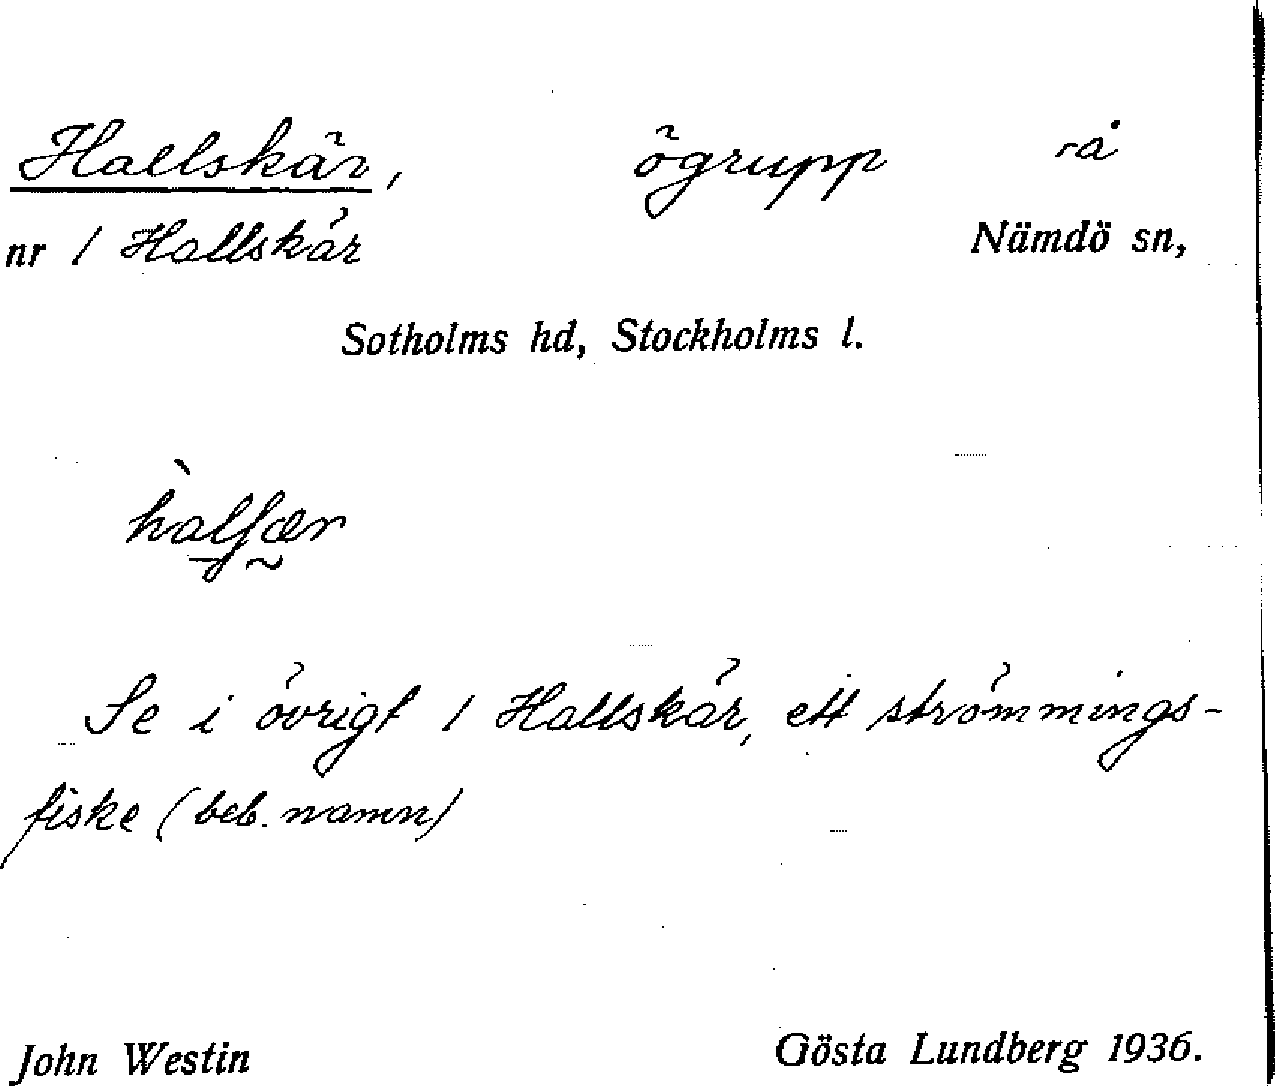 Hallskär, ögrupp rå
nr 1 Hallskär Nämdö sn,
Sotholms hd, Stockholms l.
Se i övrigt 1 Hallskär, ett strömmings-
fiske (beb. namn)
John Westin Gösta Lundberg 1936.